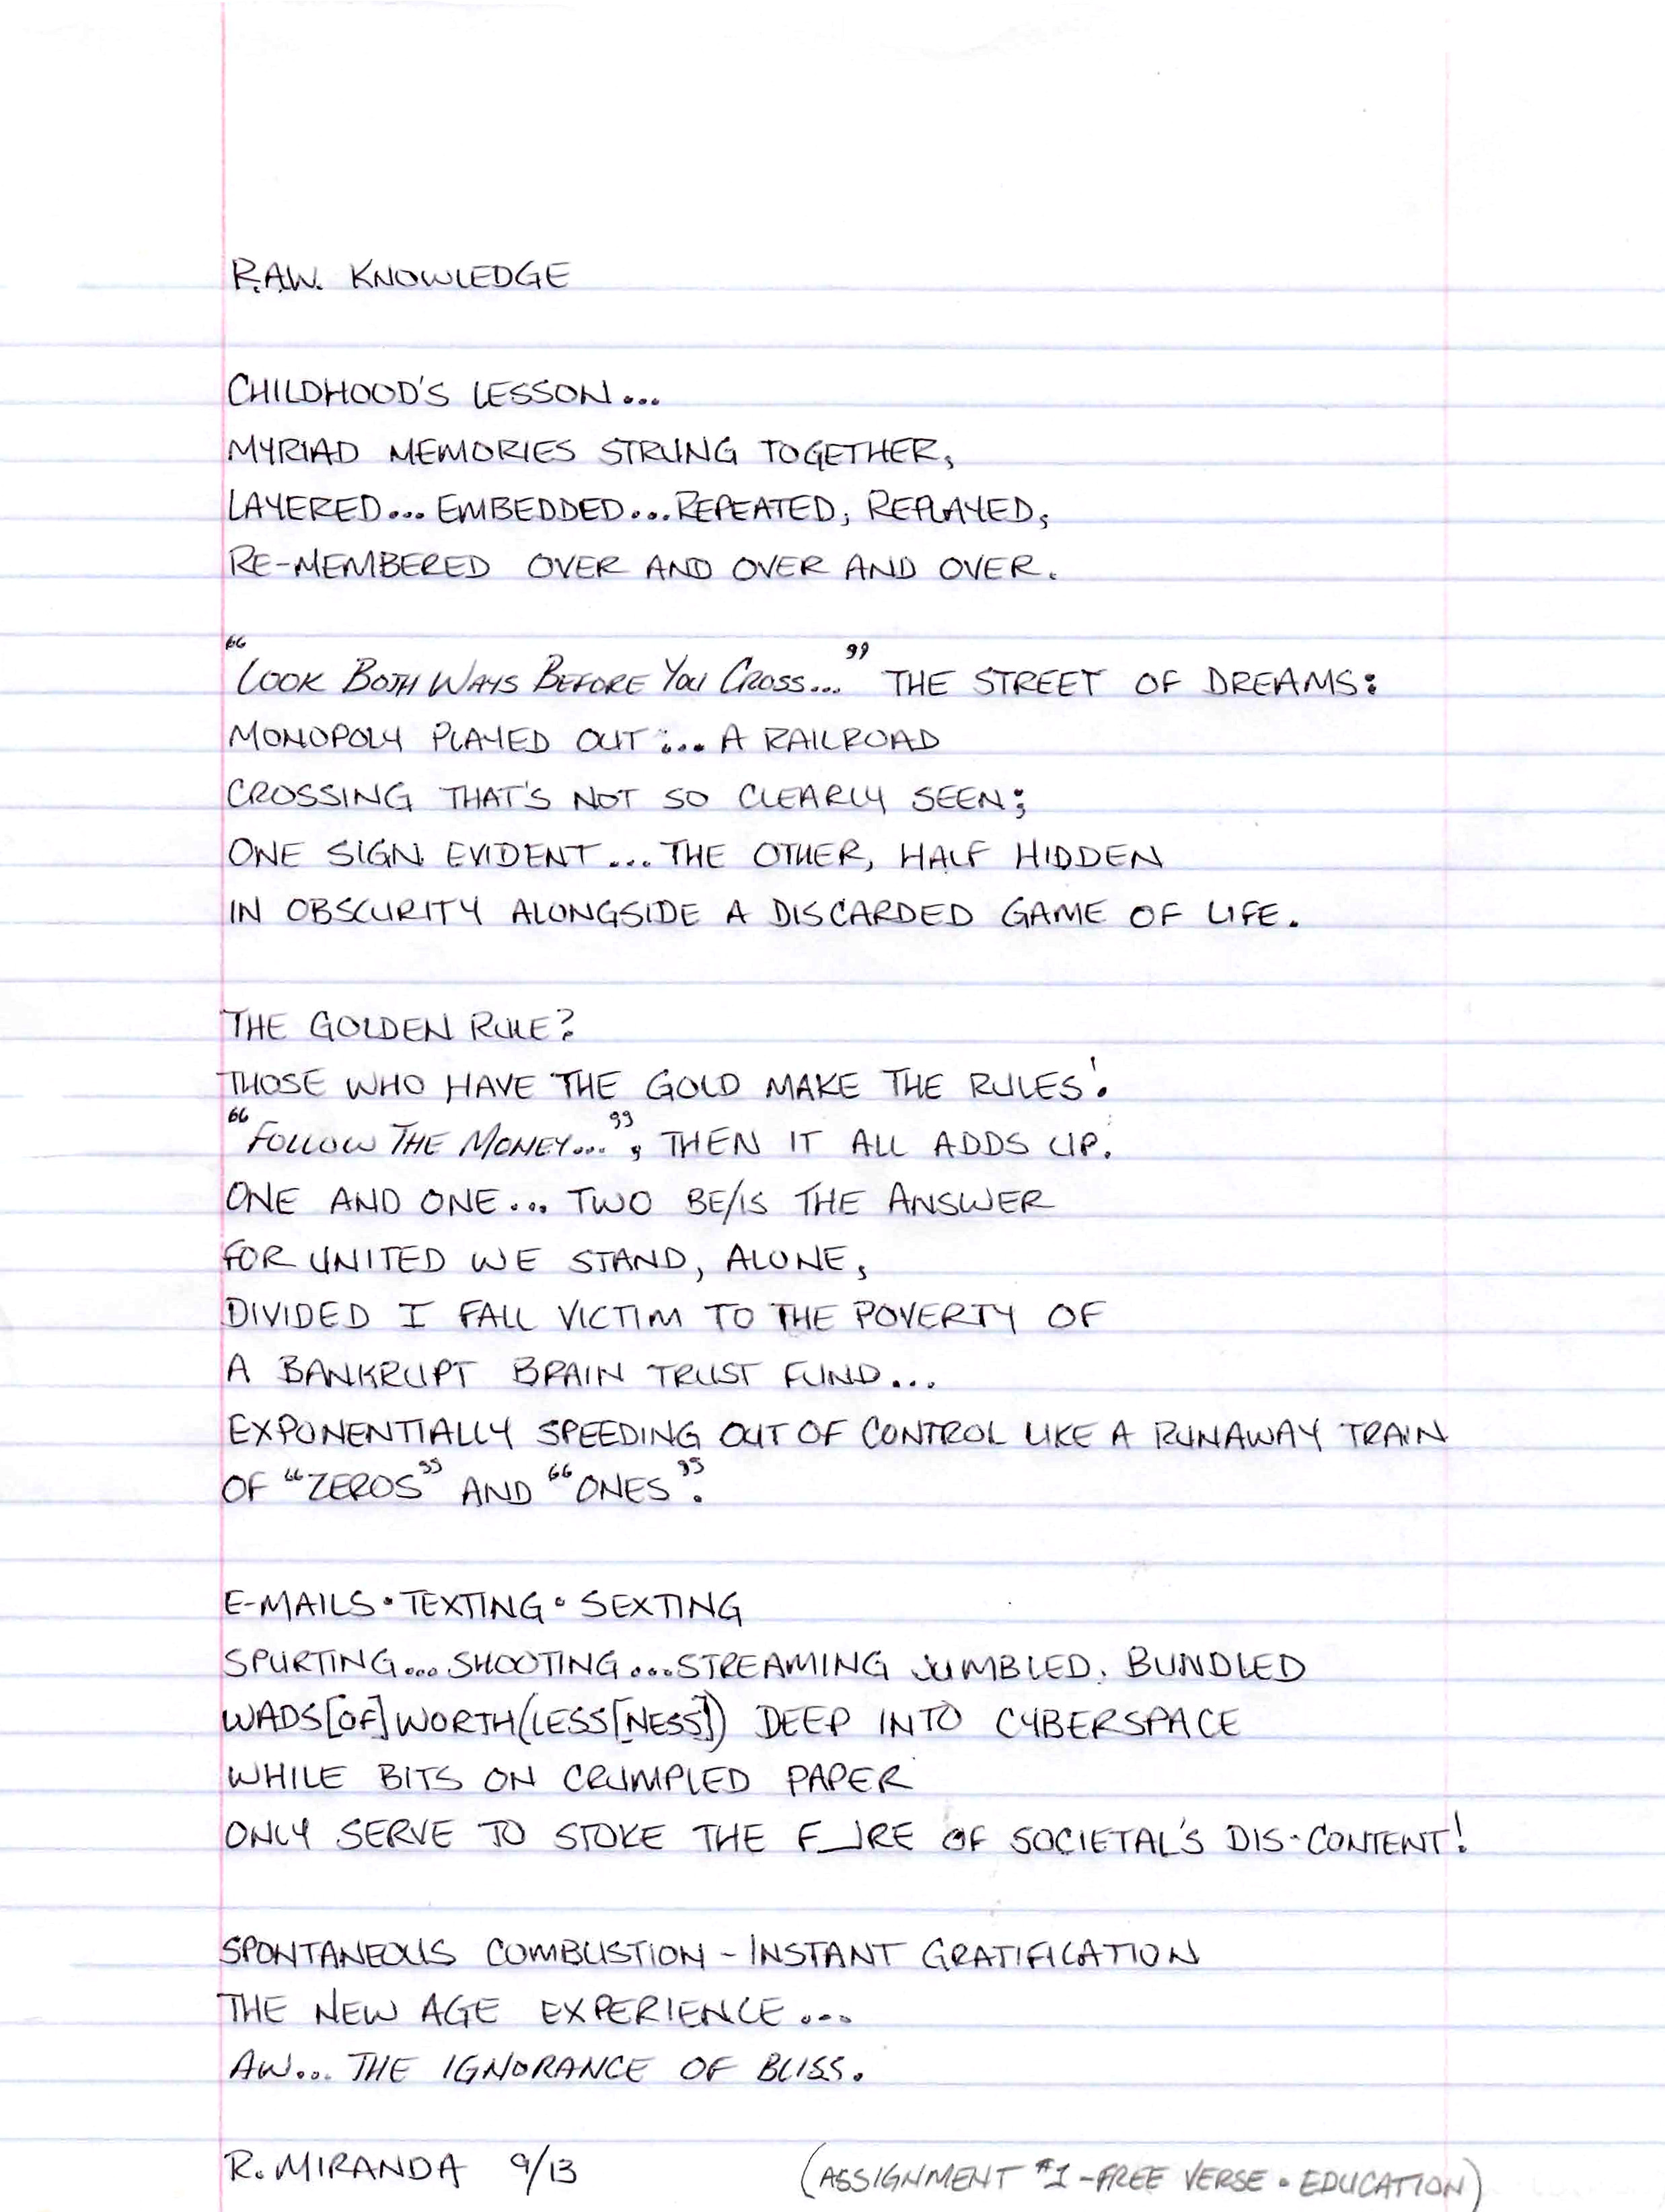 R.A.W. KNOWLEDGE
CHILDHOOD'S LESSON...
MYRIAD MEMORIES STRUNG TOGETHER,
LAYERED... EMBEDDED... REPEATED, REPLAYED,
RE-MEMBERED OVER AND OVER AND OVER.
"LOOK BOTH WAYS BEFORE YOU CROSS..." THE STREET OF DREAMS:
MONOPOLY PLAYED OUT:... A RAILROAD
CROSSING THAT'S NOT SO CLEARLY SEEN;
ONE SIGN EVIDENT... THE OTHER, HALF HIDDEN
IN OBSCURITY ALONGSIDE A DISCARDED GAME OF LIFE.
THE GOLDEN RULE?
THOSE WHO HAVE THE GOLD MAKE THE RULES!
"FOLLOW THE MONEY...", THEN IT ALL ADDS UP.
ONE AND ONE... TWO BE/IS THE ANSWER
FOR UNITED WE STAND, ALONE,
DIVIDED I FALL VICTIM TO THE POVERTY OF
A BANKRUPT BRAIN TRUST FUND...
EXPONENTIALLY SPEEDING OUT OF CONTROL LIKE A RUNAWAY TRAIN
OF "ZEROS" AND "ONES".
E-MAILS • TEXTING • SEXTING
SPURTING... SHOOTING... STREAMING JUMBLED, BUNDLED
WADS[OF]WORTH(LESS[NESS]) DEEP INTO CYBERSPACE
WHILE BITS ON CRUMPLED PAPER
ONLY SERVE TO STOKE THE F_IRE OF SOCIETAL'S DIS-CONTENT!
SPONTANEOUS COMBUSTION - INSTANT GRATIFICATION
THE NEW AGE EXPERIENCE...
AW... THE IGNORANCE OF BLISS.
R. MIRANDA 9/13 (ASSIGNMENT #1 - FREE VERSE • EDUCATION)